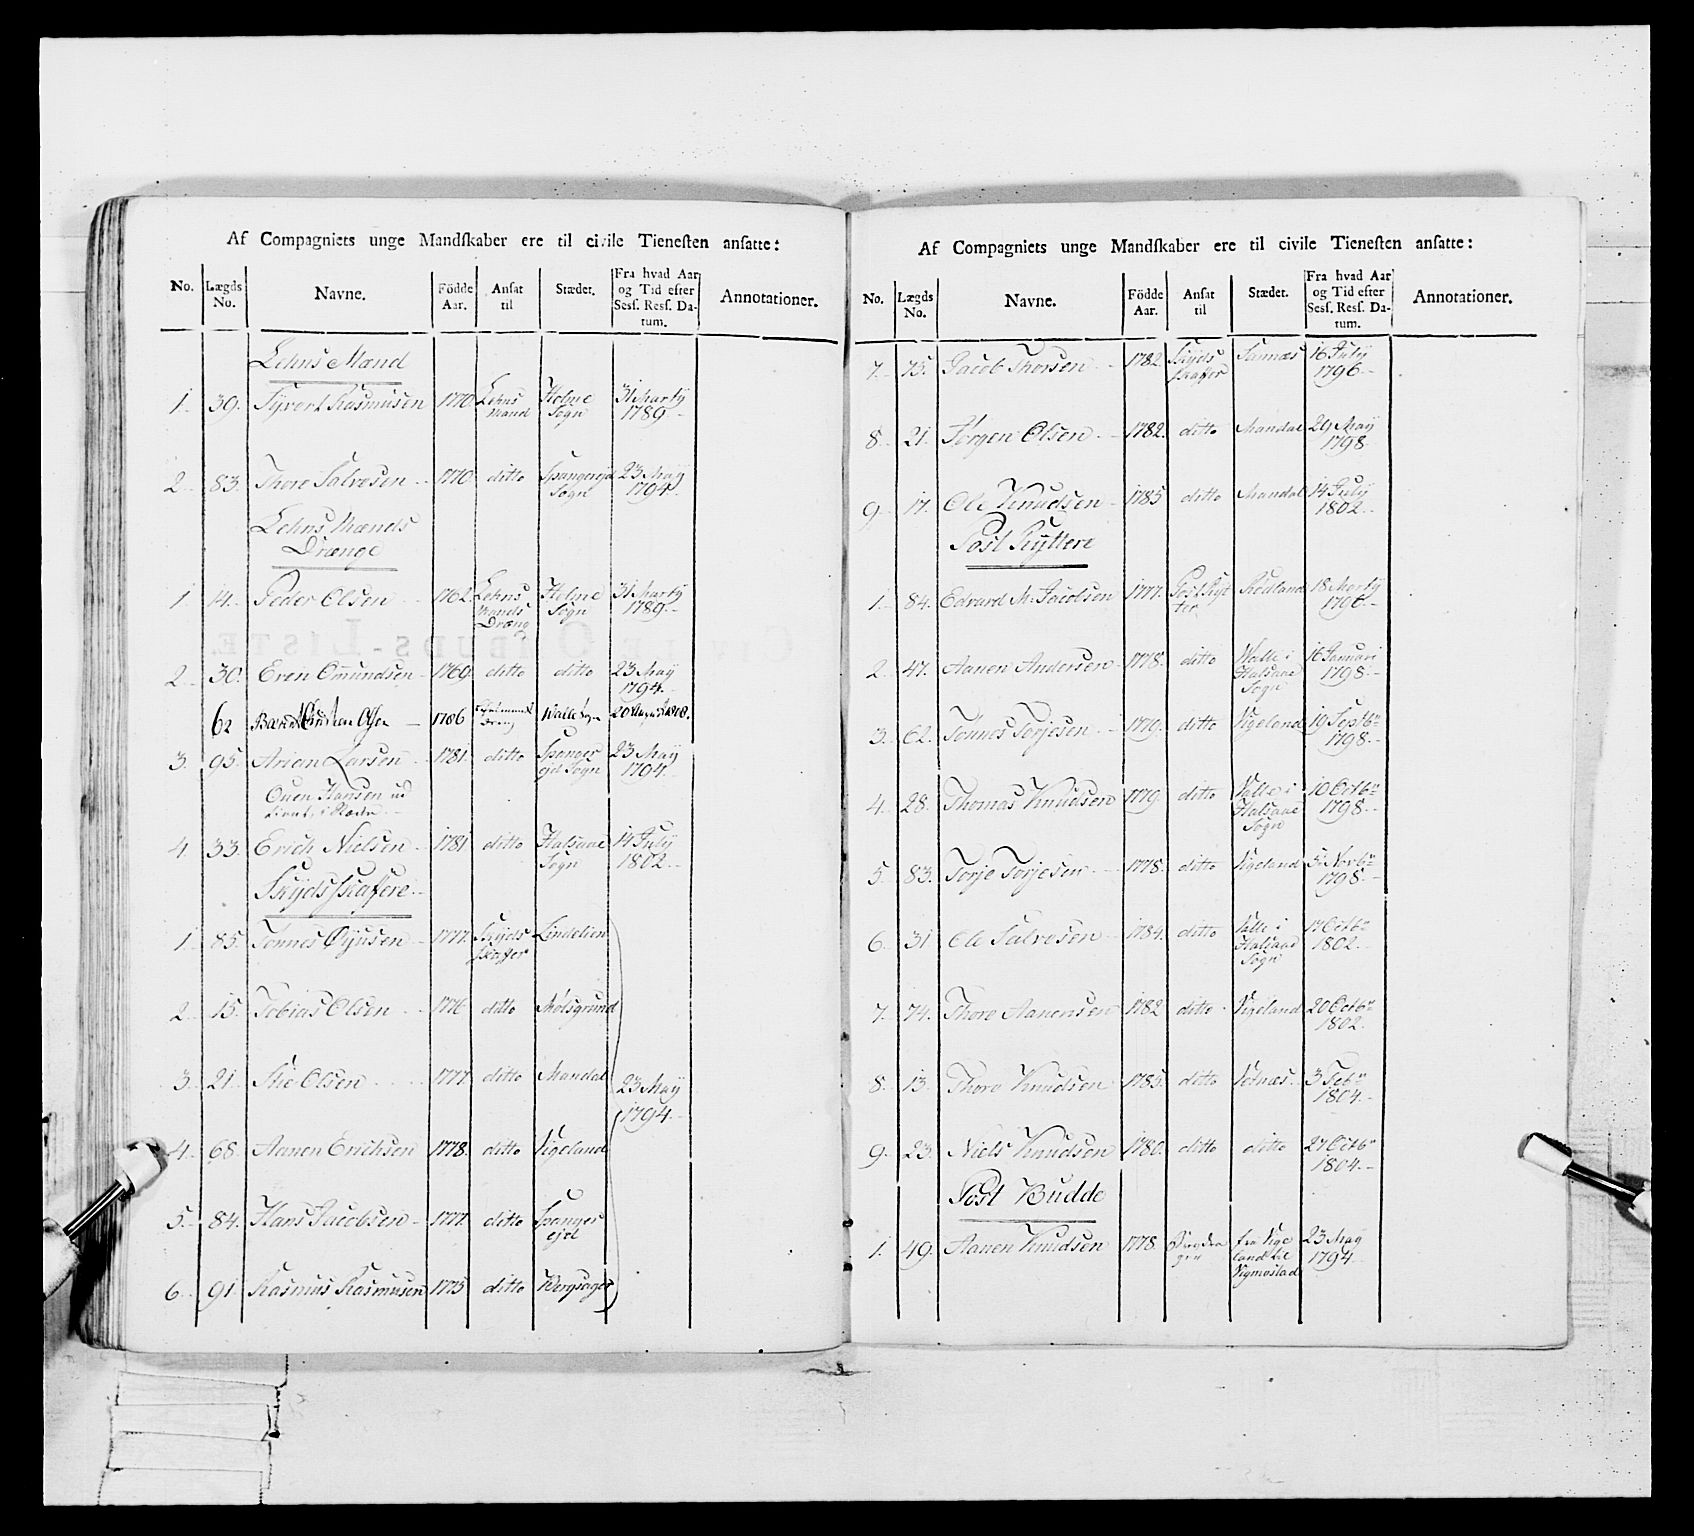 Af Compagniets unge Mandſkaber ere til civile Tieneſten anſatte:
No. Lægds No. Navne. Födde Aar. Anſat til Stædet. Fra hvad Aar og Tid efter Seſſ. Reſſ. Datum. Annotationer.
Lehns Mænd
1. 39. Syvert Rasmusen 1770. Lehns Mand Holme Sogn 31 Marty 1789
2. 83. Thore Salvesen 1770 ditto Spangereid Sogn 23 May 1794.
Lehns Mænds
Drænge
1. 14. Peder Olsen 1762. Lehns Mands Dræng Holme Sogn 31 Marty 1789
2. 30. Even Omundsen 1769. ditto ditto 23 May 1794.
62 Bærnt Christian Olsen 1786 Walle Sogn 20 August 1808.
3. 95. Arien Larsen 1781. ditto Spanger ejd Sogn 23 May 1794.
Ouen Hansen ud
4. 33. Erich Nielsen 1781 ditto Halsaae Sogn 14 July 1802.
Skyds skaffere
1. 85. Tønnes 1777. Skyds skaffer Lindelien
2. 15. Tobias Olsen 1776 ditto Mølsgrund
3. 21. Olsen 1777. ditto Mandal 23 May 1794.
4. 68. Aanen Erichsen 1778. ditto Vigeland
5. 84. Hans Jacobsen 1777. ditto Spanger ejd
6. 91. Rasmus Rasmusen 1775 ditto Bergsager
Af Compagniets unge Mandſkaber ere til civile Tieneſten anſatte:
No. Lægds No. Navne. Födde Aar. Anſat til Stædet. Fra hvad Aar og Tid efter Seſſ. Reſſ. Datum. Annotationer.
7. 75. Jacob Thorsen 1782. Skyds skaffer Sanæs 16 July 1796.
8. 21. Jørgen Olsen 1782. ditto Mandal 29 May 1798
9. 17. Ole Knudsen 1785 ditto Mandal 14 July 1802.
Post Ryttere
1. 84. Edvard M. Jacobsen 1777. Post Ryt ter Rødland 18 Marty 1796.
2. 47. Aanen Andersen 1778. ditto Walle i Halsaae Sogn 16 Januari 1798.
3. 62. Tønnes Torjesen 1779. ditto Vigeland 19 Septbr 1798.
4. 28. Thomas Knudsen 1779. ditto Valle i Halsaae Sogn 10 Octbr 1798.
5. 83. Torje Torjesen 1778. ditto Vigeland 5 Novbr 1798.
6. 31 Ole Salvesen 1784. ditto Valle i Halsaae Sogn 17 Octbr 1802.
7. 74. Thore Aanensen 1782 ditto Vigeland 20 Octbr 1802.
8. 13. Thore Knudsen 1785. ditto 3 Febr 1804.
9. 23. Niels Knudsen 1780. ditto ditto 27 Octbr 1804.
Post Budde
1. 49. Aanen Knudsen 1778. fra Vige land til Vigmostad 23 May 1794